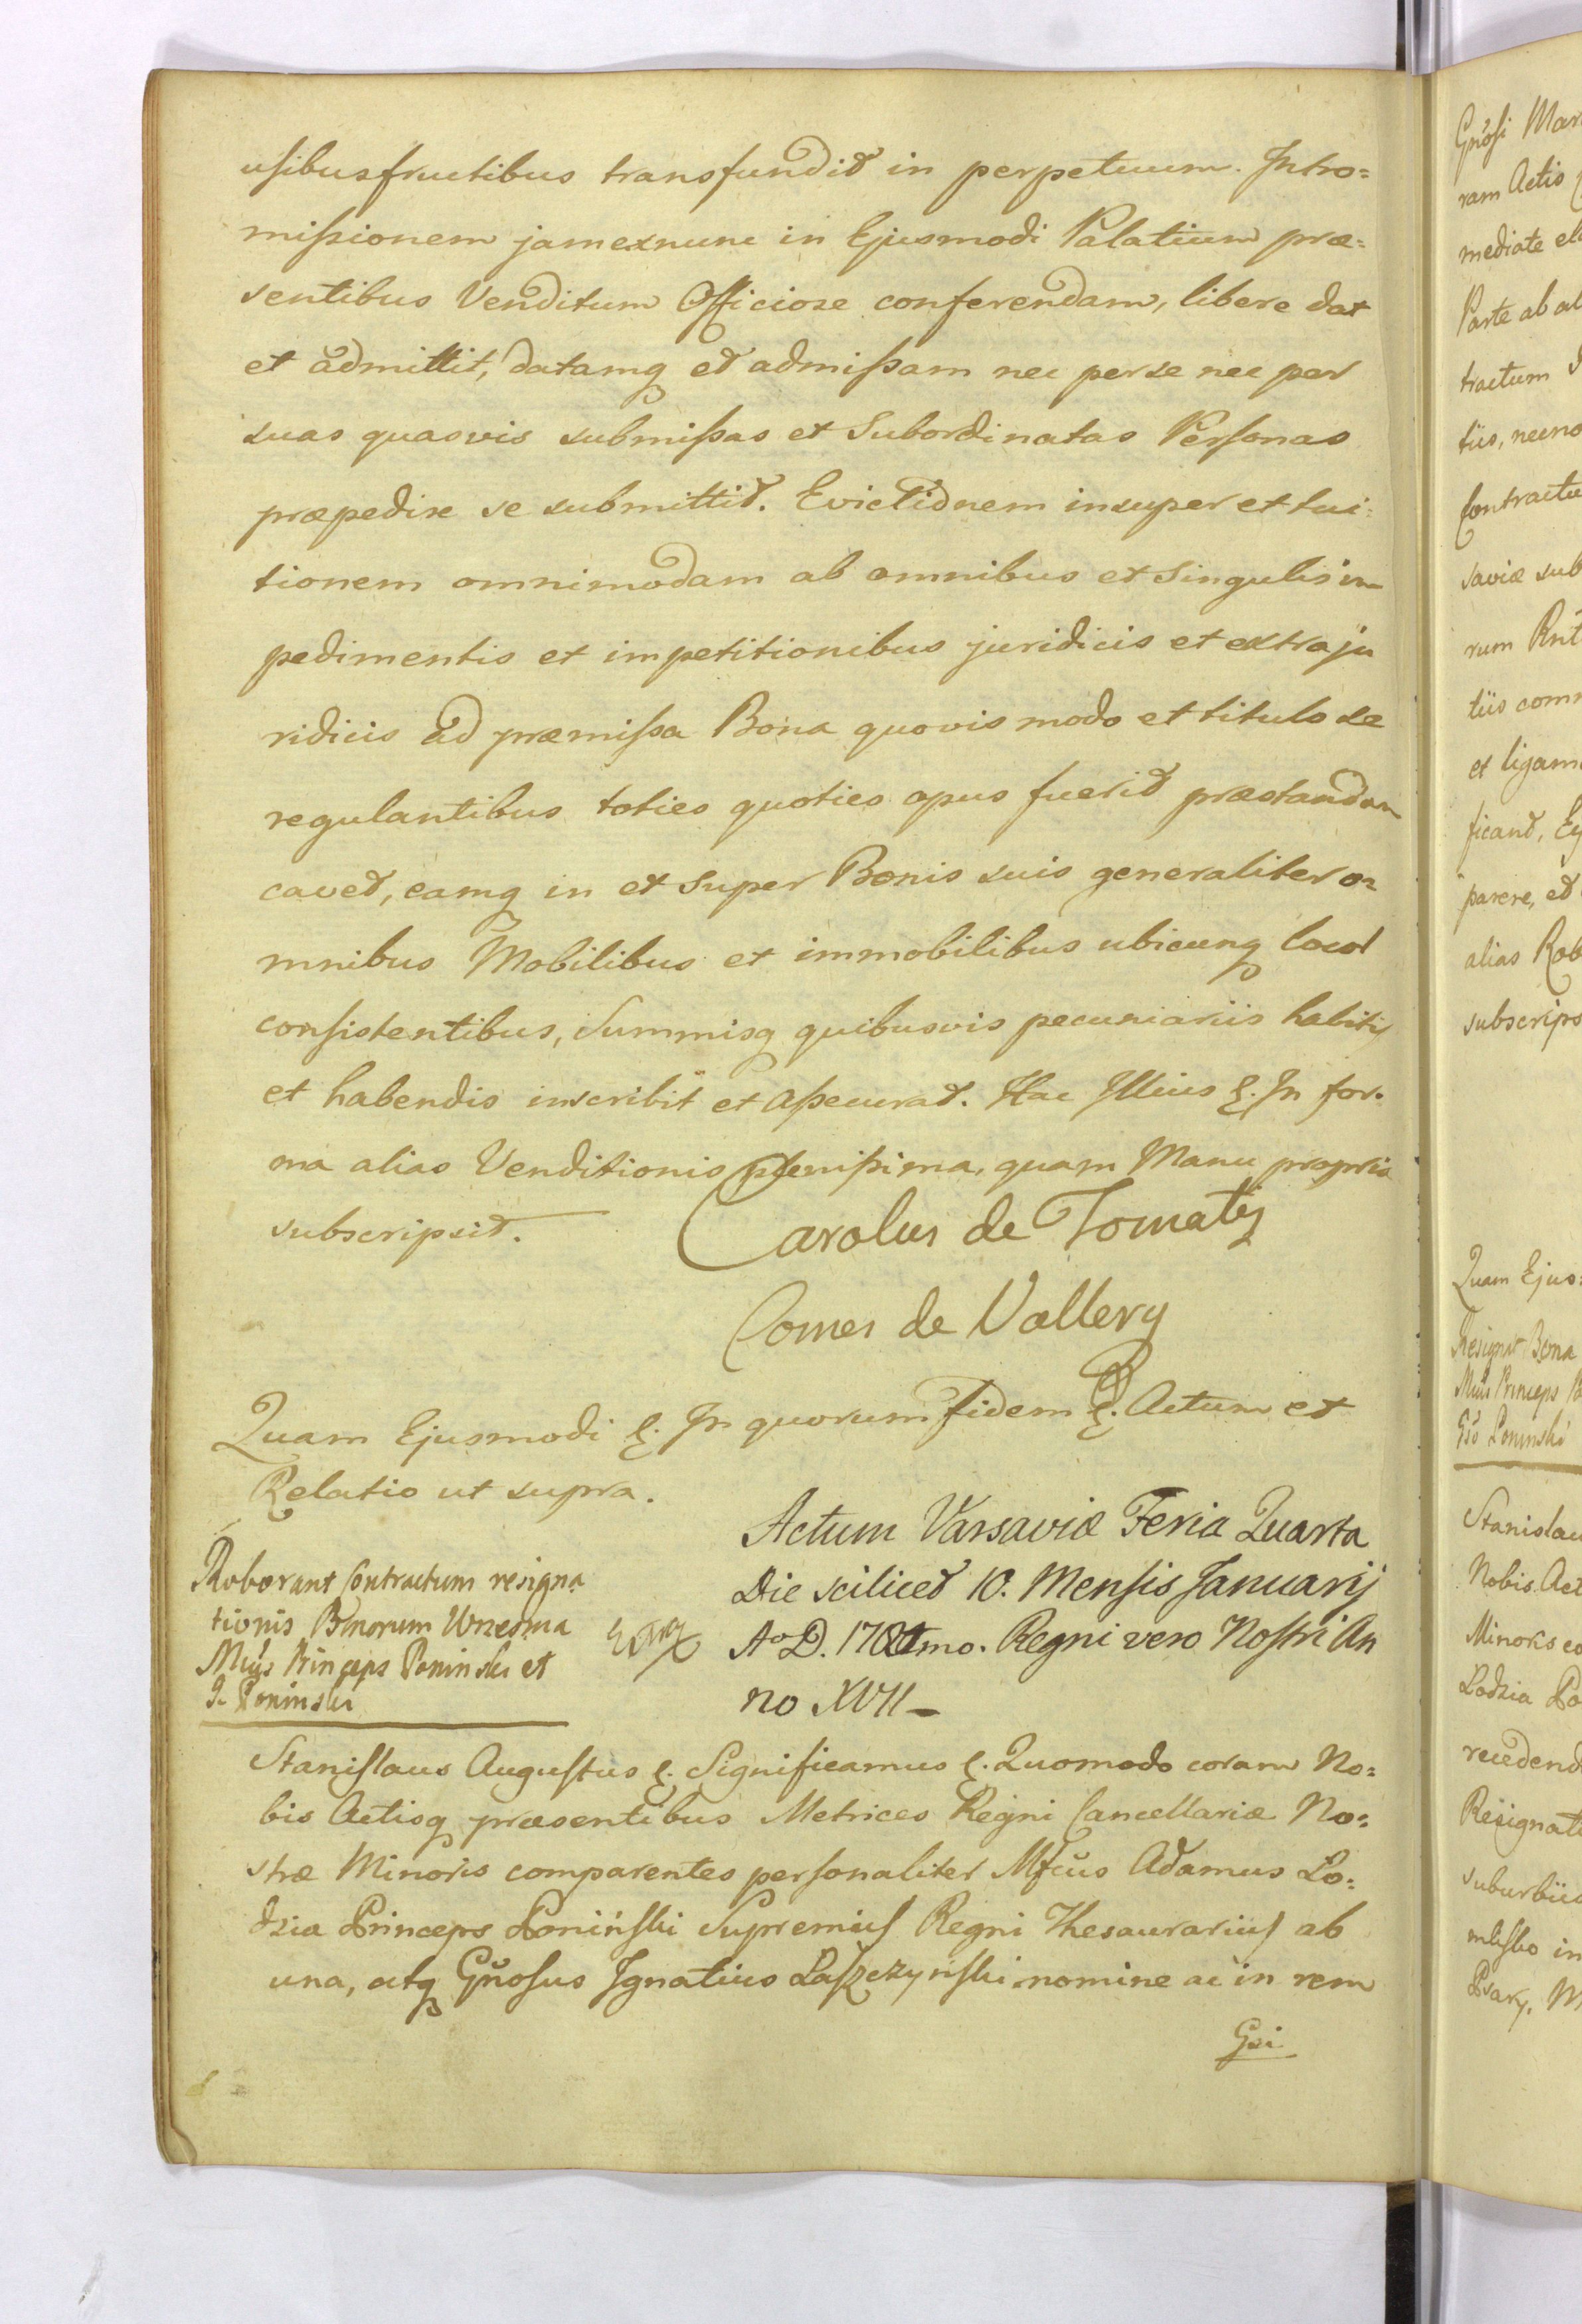 usibusfructibus transfundit in perpetuum. Intro=
missionem jamexnunc in Ejusmodi Palatium præ=
sentibus Venditum Officiose conferendam, libere dat
et admittit, datamq et admissam nec per se nec per
suas quasvis submissas et Subordinatas Personas
præpedire se submittit. Evictionem insuper et tui=
tionem omnimodam ab omnibus et Singulis im
pedimentis et impetitionibus juridicis et extraju
ridicis ad præmissa Bona quovis modo et titulo se
regulantibus toties quoties opus fuerit præstandam
cavet, eamq in et super Bonis suis generaliter o=
mnibus Mobilibus et immobilibus ubicunq locor
consistentibus, Summisq quibusvis pecuniariis habitis
et habendis inscribit et assecurat. Hac Illius &. In for=
ma alias Venditionis plenissima, quam Manu propria
subscripsit. Carolus de Tomatis
Comes de Vallery
Quam Ejusmodi &. In quorum Fidem &. Actum et
Relatio ut supra.
Actum Varsaviæ Feria Quarta
Die scilicet 10. Mensis Januarij
Ao D. 1781mo. Regni vero Nostri An
no XVII
Roborant Contractum resigna
tionis Bonorum Wrzesnia
Mcus Princeps Poninski et
G. Poninski
Stanislaus Augustus &. Significamus &. Quomodo coram No=
bis Actisq præsentibus Metrices Regni Cancellariæ No=
stræ Minoris comparentes personaliter Mfcus Adamus Lo=
dzia Princeps Poniński Supremus Regni Thesaurarius ab
una, atq Gnosus Ignatius Laszczyński nomine ac in rem
Gsi
Gnosi Mar
ram Actis
mediate el
Parte ab al
tractum
tiis, necno
Contractu
saviæ sub
rum
tiis com
et ligam
ficand,
parere, et
alias Rob
subscrips
Quam Ejus=
Resignat Bona
Mcus Princeps
Gso Poninski
Stanislau
Nobis Act
Minoris co
Lodzia Po
recedend
Resignati
suburbiis
in